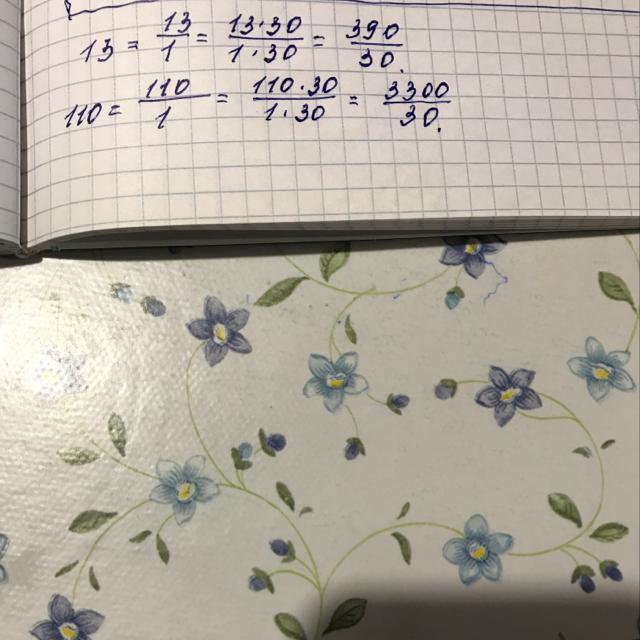 13 = 13/1 = 13·30/1·30 = 390/30.
110 = 110/1 = 110·30/1·30 = 3300/30.